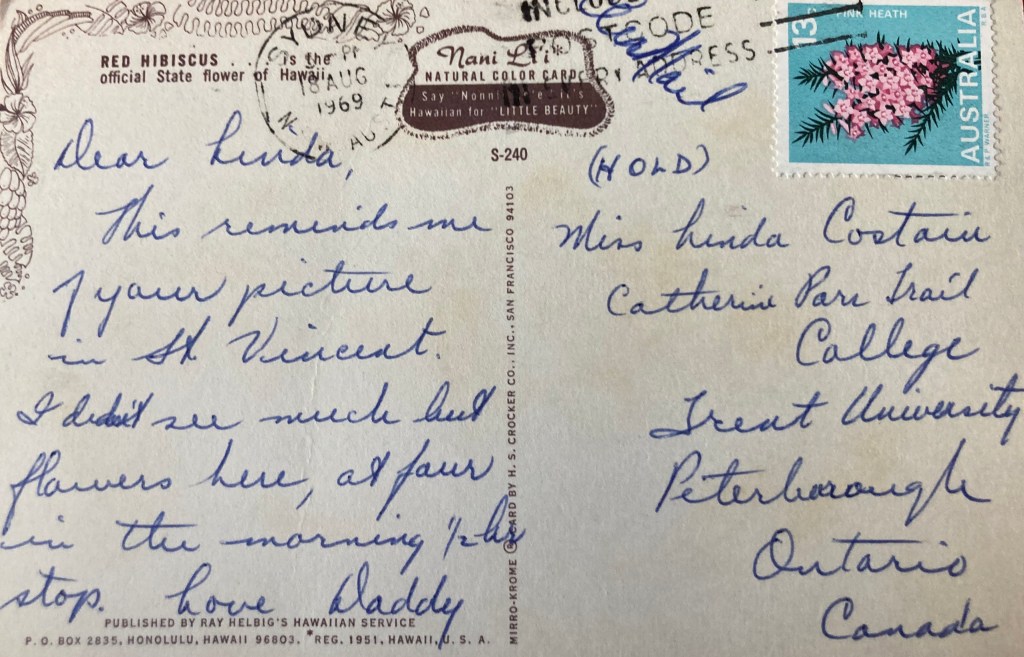 RED HIBISCUS . . . is the
official State flower of Hawaii
SYDNEY
PM
18 AUG
1969
N.S.W. AUST
Nani Li'i*
NATURAL COLOR CARD
Say "Nonnie Lee" it's
Hawaiian for "LITTLE BEAUTY"
S-240
INCLUDE
CODE
ADDRESS
Air Mail
13c
PINK HEATH
AUSTRALIA
R & P WARNER
Dear Linda,
This reminds me
of your picture
in St. Vincent.
I didn't see much but
flowers here, at four
in the morning 1/2 hr
stop. Love Daddy
(HOLD)
Miss Linda Costain
Catherine Parr Trail
College
Trent University
Peterborough
Ontario
Canada
MIRRO-KROME ® CARD BY H. S. CROCKER CO., INC., SAN FRANCISCO 94103
PUBLISHED BY RAY HELBIG'S HAWAIIAN SERVICE
P. O. BOX 2835, HONOLULU, HAWAII 96803. *REG. 1951, HAWAII, U. S. A.